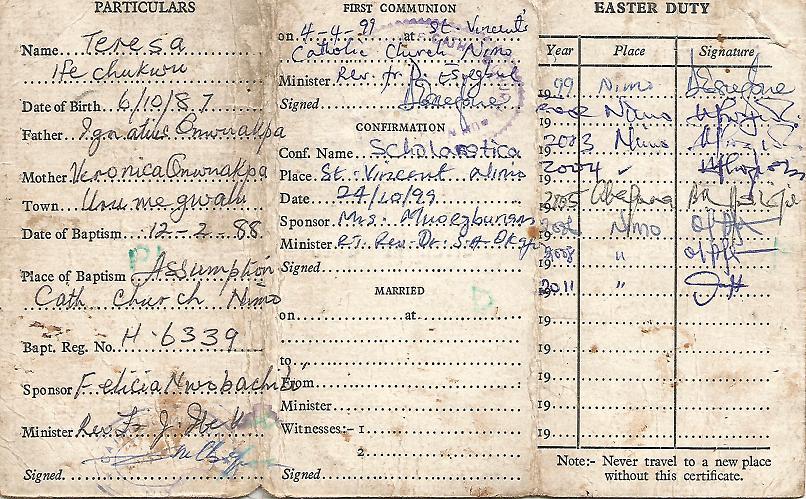 PARTICULARS
Name Teresa
Ifechukwu
Date of Birth 6/10/87
Father Ignatius Onwuakpa
Mother Veronica Onwuakpa
Town Umumegwali
Date of Baptism 12-2-88
Place of Baptism Assumption
Cath Church Nimo
Bapt. Reg. No. H.6339
Sponsor Felicia
Minister Rev. Fr J.
Signed.
FIRST COMMUNION
on 4-4-99 at St. Vincent's
Catholic Church Nimo
Minister Rev. fr. P.
Signed
CONFIRMATION
Conf. Name Scholarstica
Place St. Vincent Nimo
Date 24/10/99
Sponsor Mrs.
Minister Rt. Rev. Dr. S.A.
Signed
MARRIED
on at
to
From
Minister
Witnesses:- 1
2
Signed
EASTER DUTY
Year Place Signature
1999 Nimo
Nimo
2003 Nimo
2004 "
2005
Nimo
2008 "
2011 "
19
19
19
19
19
Note:- Never travel to a new place
without this certificate.